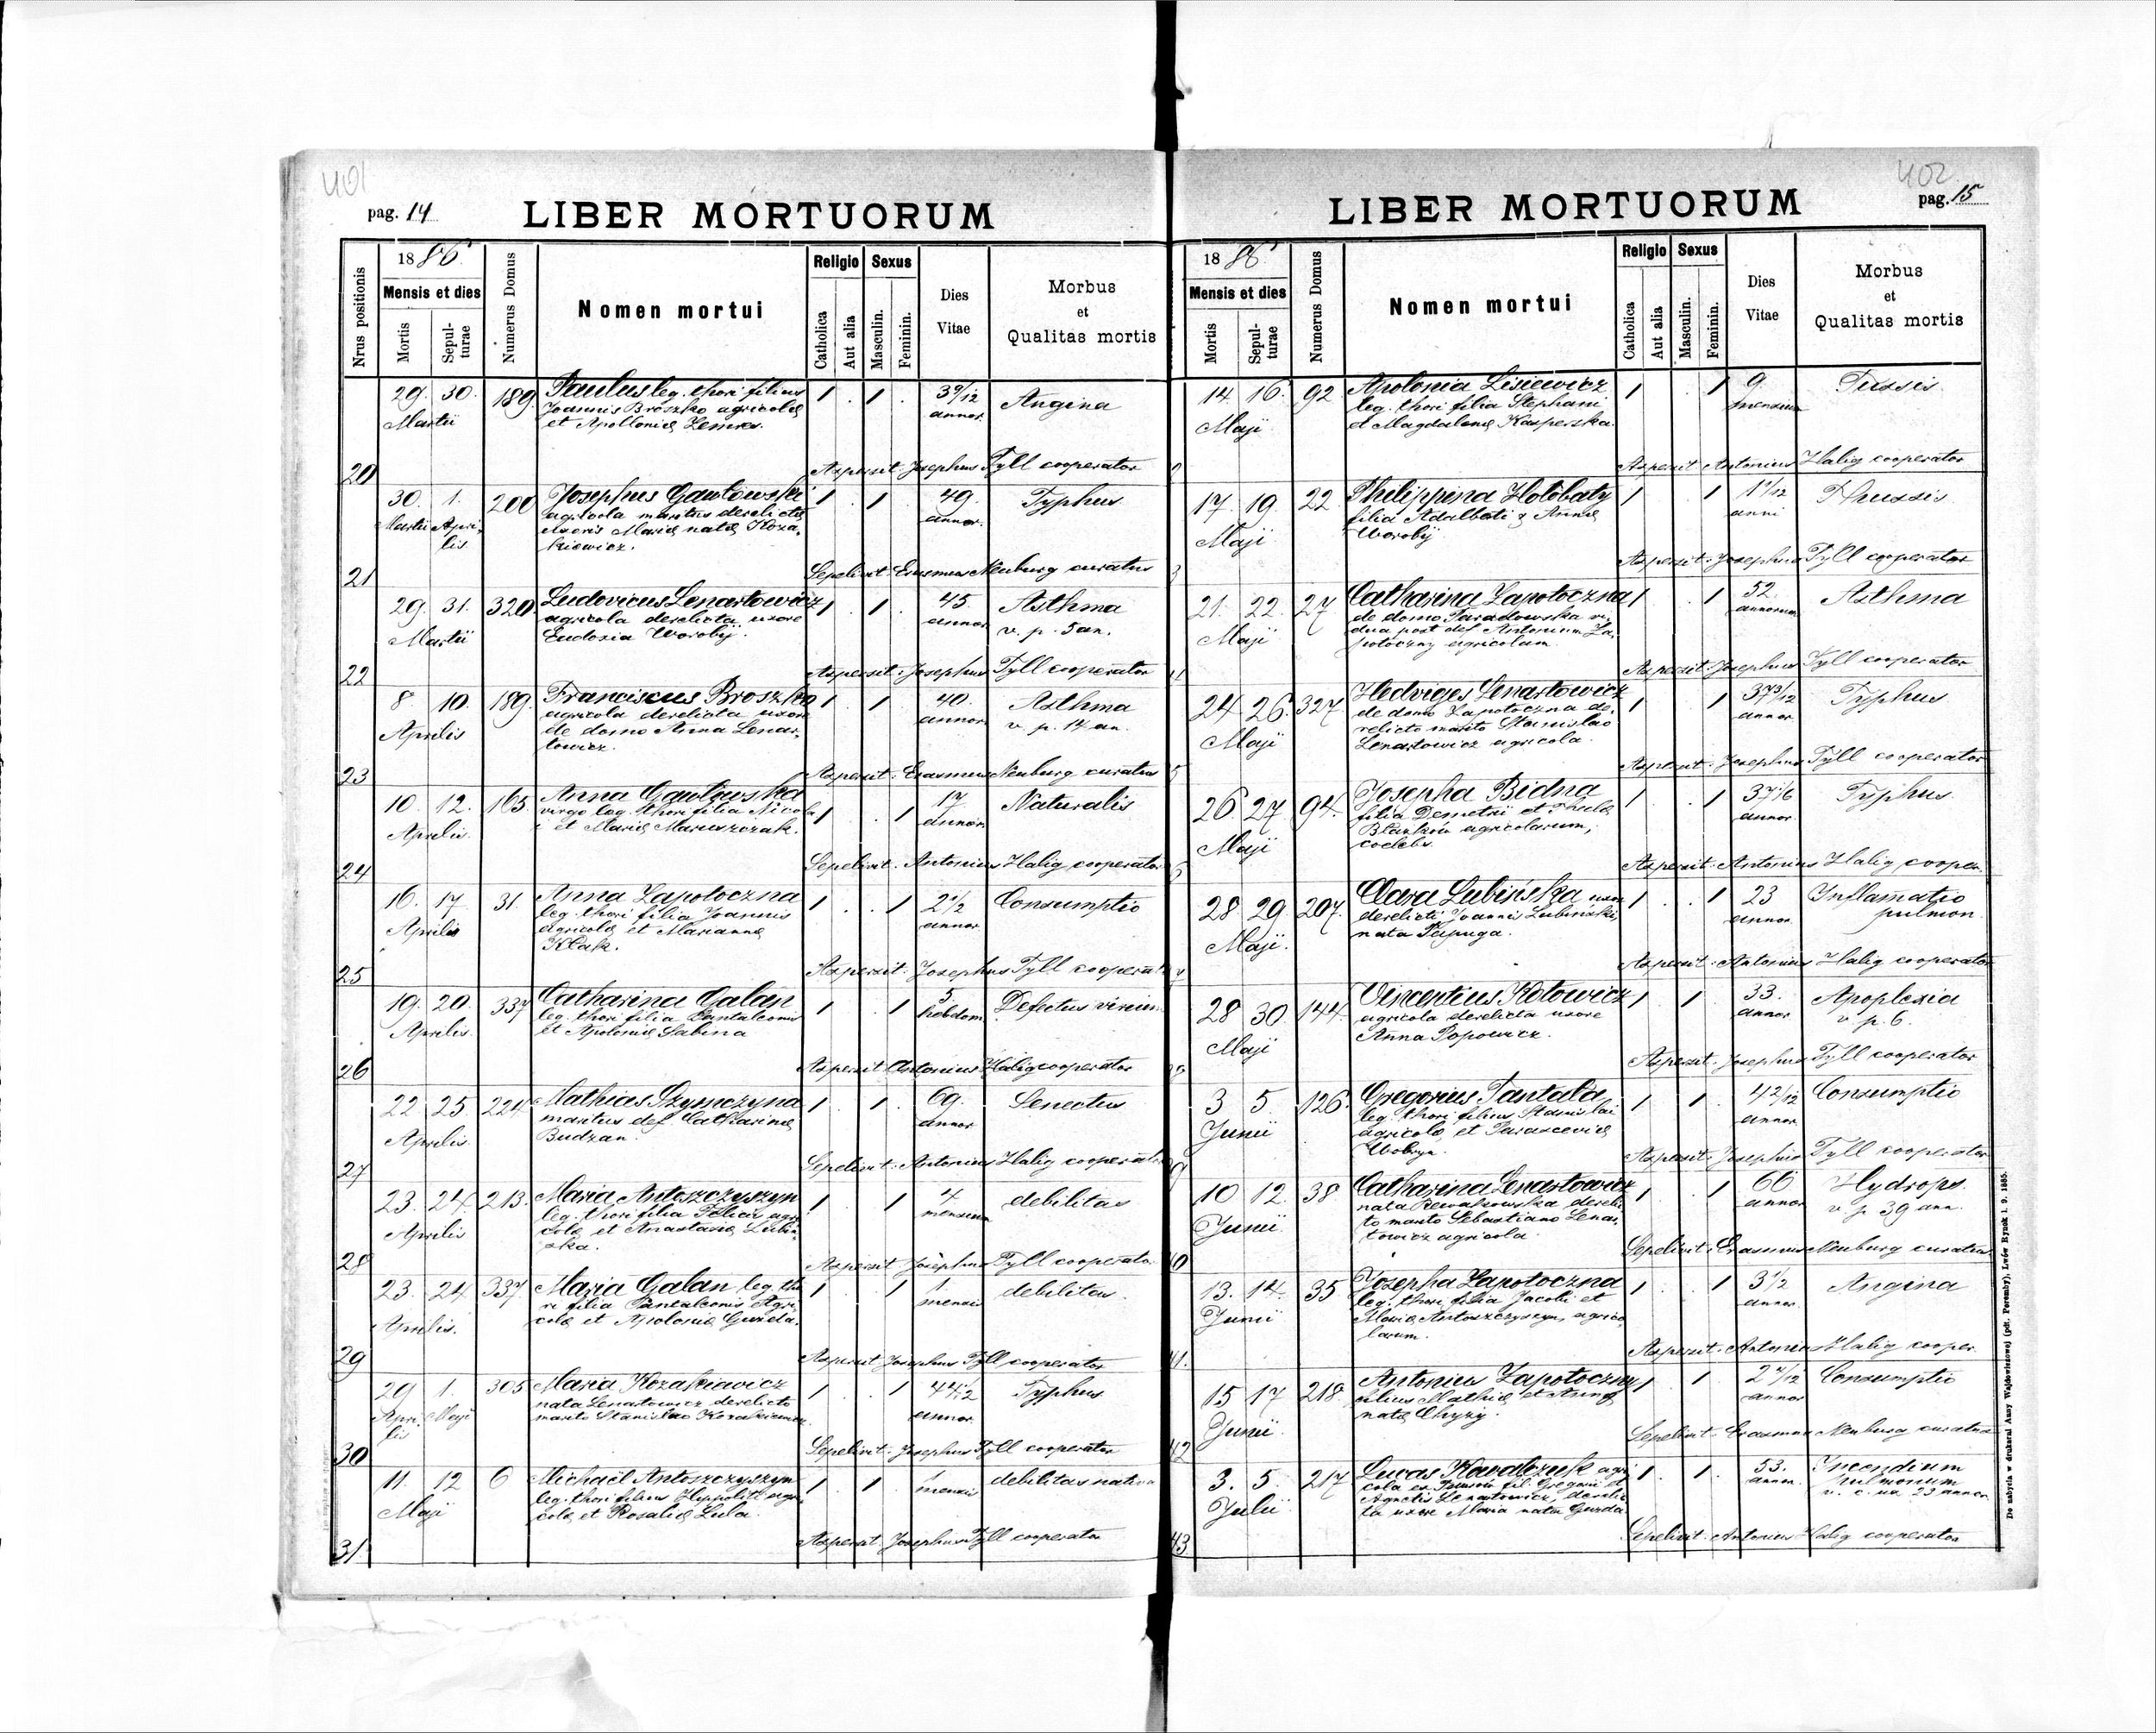 401
pag. 14
LIBER MORTUORUM
Nrus positionis
1886
Mensis et dies
Mortis
Sepulturae
Numerus Domus
Nomen mortui
Religio
Catholica
Aut alia
Sexus
Masculin.
Feminin.
Dies Vitae
Morbus et Qualitas mortis
29. 30. 189. Paulus leg. thori filius 1 . 1 . 3 9/12 Angina
Martii Joannis Broszko agricolae annor.
et Apolloniae
20 Aspersit: Josephus Tyll cooperator
30. 1. 200 Josephus Gawłowski 1 . 1 49. Typhus
Martii Apri- agricola maritus derelictae annor.
lis uxoris Mariae natae Koza-
kiewicz.
21 Sepelivit: Erasmus Neuburg curatus
29. 31. 320. Ludovicus Lenartowicz 1 . 1 45. Asthma
Martii agricola derelicta uxore annor. v. p. 5 an.
Eudoxia Worobij.
22 Aspersit: Josephus Tyll cooperator
8. 10. 189. Franciscus Broszko 1 . 1 40. Asthma
Aprilis agricola derelicta uxore annor. v. p. 14 an.
de domo Anna Lenar-
towicz.
23 Aspersit: Erasmus Neuburg curatus
10. 12. 165. Anna Gawłowska 1 . 1 17 Naturalis
Aprilis virgo leg. thori filia Nicola annor.
i et Mariae Maruszczak.
24 Sepelivit: Antonius Halig cooperator
16. 17. 31. Anna Zapotoczna 1 . . 1 2 1/2 Consumptio
Aprilis leg. thori filia Joannis annor.
agricolae et Mariannae
Kłak.
25 Aspersit: Josephus Tyll cooperat
19. 20. 337 Catharina Galan 1 . 1 5 Defectus virium
Aprilis leg. thori filia Pantaleonis hebdom.
et Apoloniae Sabina
26 Aspersit Antonius Halig cooperator
22 25 224 Mathias Szymczyna 1 . 1 69. Senectus
Aprilis maritus def. Catharinae annor.
Budzan.
27 Sepelivit: Antonius Halig cooperat
23. 24. 213. Maria Antoszczyszyn 1 . 1 4 debilitas
Aprilis leg. thori filia Felicis agri- mensium
colae et Anastasiae Lubin-
ska.
28 Aspersit Josephus Tyll cooperato
23. 24 337 Maria Galan leg. tho 1 . 1 1 debilitas.
Aprilis. ri filia Pantaleonis Agri- mensis
colae et Apoloniae
29 Aspersit Josephus Tyll cooperator
29 1. 305 Maria Kozakiewicz 1 . 1 44 1/2 Typhus
Apri- Maji nata Lenartowicz derelicto annor.
lis marito Stanislao Kozakiewicz.
30 Sepelivit: Josephus Tyll cooperator
11. 12 6 Michaël Antoszczyszyn 1 . 1 1 debilitas nativa
Maji leg. thori filius Hippoliti agri- mensis
colae et Rosaliae Lula.
31 Aspersit Josephus Tyll cooperator
402
pag. 15
LIBER MORTUORUM
1886
Mensis et dies
Mortis
Sepulturae
Numerus Domus
Nomen mortui
Religio
Catholica
Aut alia
Sexus
Masculin.
Feminin.
Dies Vitae
Morbus et Qualitas mortis
14 16. 92. Apolonia Lisiewicz 1 . 1 9. Tussis
Maji leg. thori filia Stephani mensium
et Magdalenae Kasperska.
Aspersit Antonius Halig cooperator
17. 19. 22. Philippina Hołobaty 1 . 1 1 1/12 Thussis
Maji filia Adalberti & Annae anni
Worobij
Aspersit: Josephus Tyll cooperator
21. 22. 27 Catharina Zapotoczna 1 . 1 52. Asthma
Maji de domo Paradowska vi- annorum
dua post def. Antonium Za-
potoczny agricolam.
Aspersit: Josephus Tyll cooperator
24 26. 327 Hedviges Lenartowicz 1 . 1 37 3/12 Typhus
Maji de domo Zapotoczna de- annor.
relicto marito Stanislao
Lenartowicz agricola.
Aspersit: Josephus Tyll cooperator
26. 27 94. Josepha Bidna 1 . 1 37 1/6 Typhus
Maji filia Demetri et annor.
agricolarum,
coelebs.
Aspersit: Antonius Halig cooper.
28 29. 207. Clara Lubińska uxor 1 . . 1 23 Inflamatio
Maji. derelicti Joannis Lubinski, annor. pulmon.
nata Papuga.
Aspersit: Antonius Halig cooperator
28 30. 144. Vincentius Kotowicz 1 . 1 33. Apoplexia
Maji agricola derelicta uxore annor. v. p. 6.
Anna Popowicz.
Aspersit: Josephus Tyll cooperator
3 5. 126. Gregorius Pantała 1 . 1 4 2/12 Consumptio
Junii leg. thori filius Stanislai annor.
agricolae et Parasceviae
Aspersit: Josephus Tyll cooperator
10 12. 38 Catharina Lenartowicz 1 . 1 66 Hydrops
Junii nata derelic- annor. v. p 39 ann.
to marito Sebastiano Lenar-
towicz agricola.
40 Sepelivit: Erasmus Neuburg curatus
13. 14. 35 Josepha Zapotoczna 1 . 1 3 1/2 Angina
Junii leg. thori filia Jacobi et annor.
Mariae Antoszczyszyn, agrico
larum.
41. Aspersit: Antonius Halig cooper.
15 17 218. Antonius Zapotoczny 1 . 1 2 4/12 Consumptio
Junii filius Mathiae et Annae annor.
natae Chyzy.
42 Sepelivit: Erasmus Neuburg curatus
3. 5. 217 Lucas Kowalczuk agri 1 . 1. 53. Incendium
Julii cola fil. Gregorii et annor. pulmonum
Agnetis Lenartowicz, derelic v. c. ux 23 annor.
ta uxore Maria nata
43 Sepelivit: Antonius Halig cooperator
De nabycia w drukarni Anny Wajdowiczowej (pdt. Poremby), Lwów Rynek l. 9. 1885.